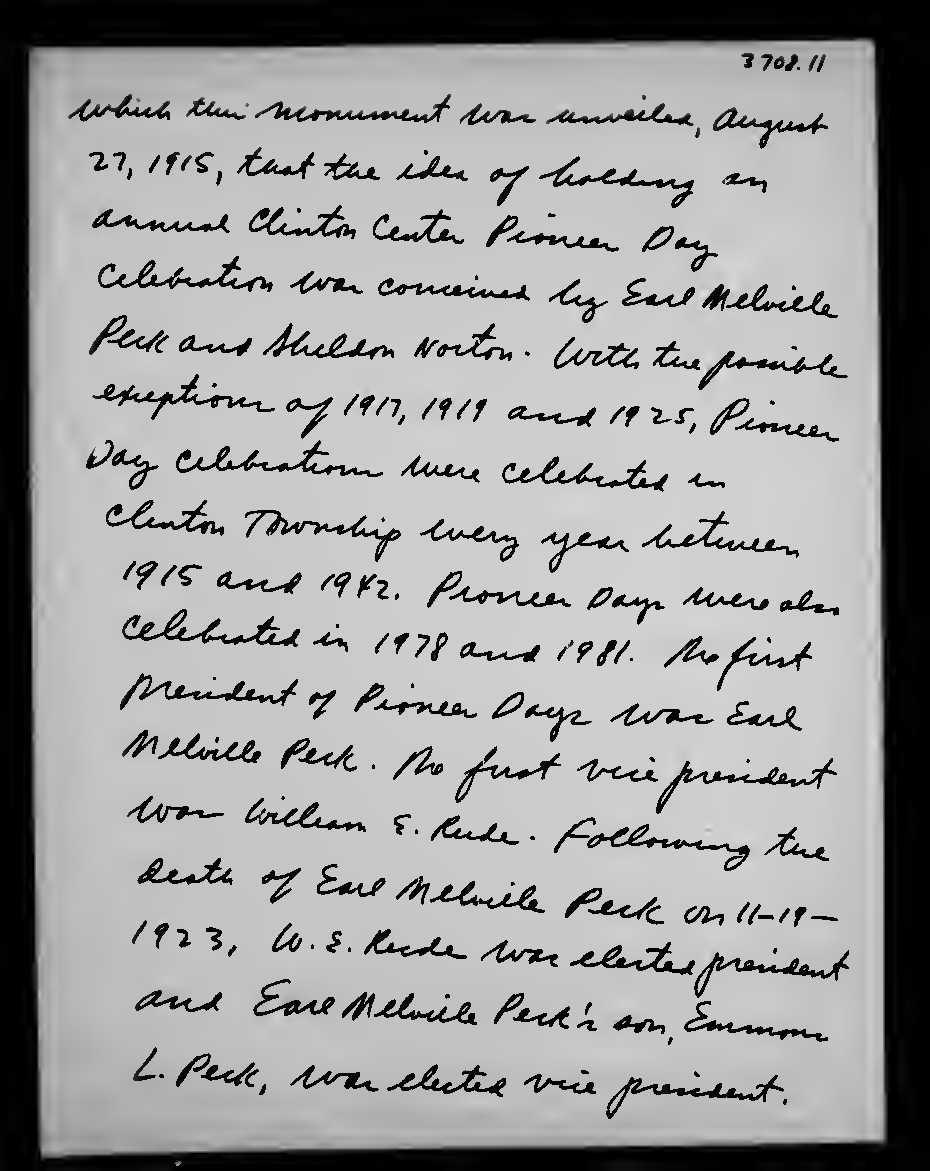 3708.11
which this monument was unveiled, August
27, 1915, that the idea of holding an
annual Clinton Center Pioneer Day
Celebration was conceived by Earl Melville
Peck and Sheldon Norton. With the possible
exceptions of 1917, 1919 and 1925, Pioneer
Day celebrations were celebrated in
Clinton Township every year between
1915 and 1942. Pioneer Days were also
celebrated in 1978 and 1981. The first
president of Pioneer Days was Earl
Melville Peck. The first vice president
was William E. Rude. Following the
death of Earl Melville Peck on 11-19-
1923, W. E. Rude was elected president
and Earl Melville Peck's son, Emmons
L. Peck, was elected vice president.